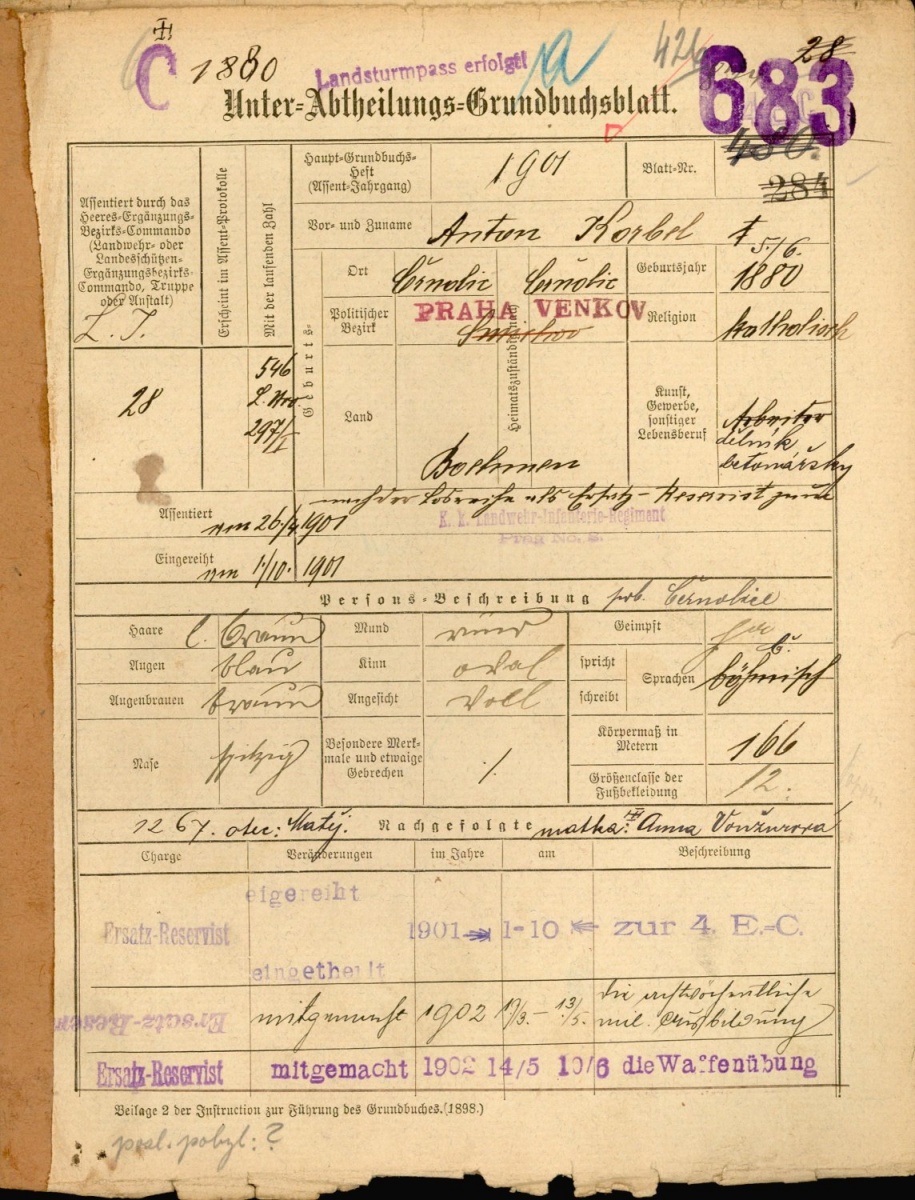 C 1880 Landsturmpass erfolgt! a 426 28
683
Unter-Abtheilungs-Grundbuchsblatt.
Assentiert durch das Heeres-Ergänzungs-Bezirks-Commando (Landwehr- oder Landesschützen-Ergänzungsbezirks-Commando, Truppe oder Anstalt)
L. I.
28
Erscheint im Assent-Protokolle
Mit der laufenden Zahl
546
297/I
Haupt-Grundbuchs-Heft (Assent-Jahrgang) 1901 Blatt-Nr. 480. 284
Vor- und Zuname Anton Korbel
Geburts- Ort Černolic Černolic Geburtsjahr 5/6. 1880
Politischer Bezirk PRAHA VENKOV Smichov Religion katholisch
Heimatszuständigkeit
Land Boehmen
Kunst, Gewerbe, sonstiger Lebensberuf Arbeiter
dělník
betonářský
Assentiert am 26/4 1901 nach der Losreihe als Ersatz-Reservist zum
K. k. Landwehr-Infanterie-Regiment
Prag No. 8.
Eingereiht am 1/10. 1901
Persons-Beschreibung Černolice
Haare l. braun Mund Geimpft ja
Augen blau Kinn oval spricht Sprachen böhmisch
Augenbrauen braun Angesicht voll schreibt
Nase spitzig Besondere Merkmale und etwaige Gebrechen /. Körpermaß in Metern 166
Größenclasse der Fußbekleidung 12.
1267. otec: Matěj. Nachgefolgte matka: Anna
Charge Veränderungen im Jahre am Beschreibung
eigereiht
Ersatz-Reservist 1901 1-10 zur 4. E.-C.
eingetheilt
Ersatz-Reser mitgemacht 1902 17/3. - 13/5. die achtwöchentliche mil. Ausbildung
Ersatz-Reservist mitgemacht 1902 14/5 10/6 die Waffenübung
Beilage 2 der Instruction zur Führung des Grundbuches. (1898.)
posl. pobyt: ?